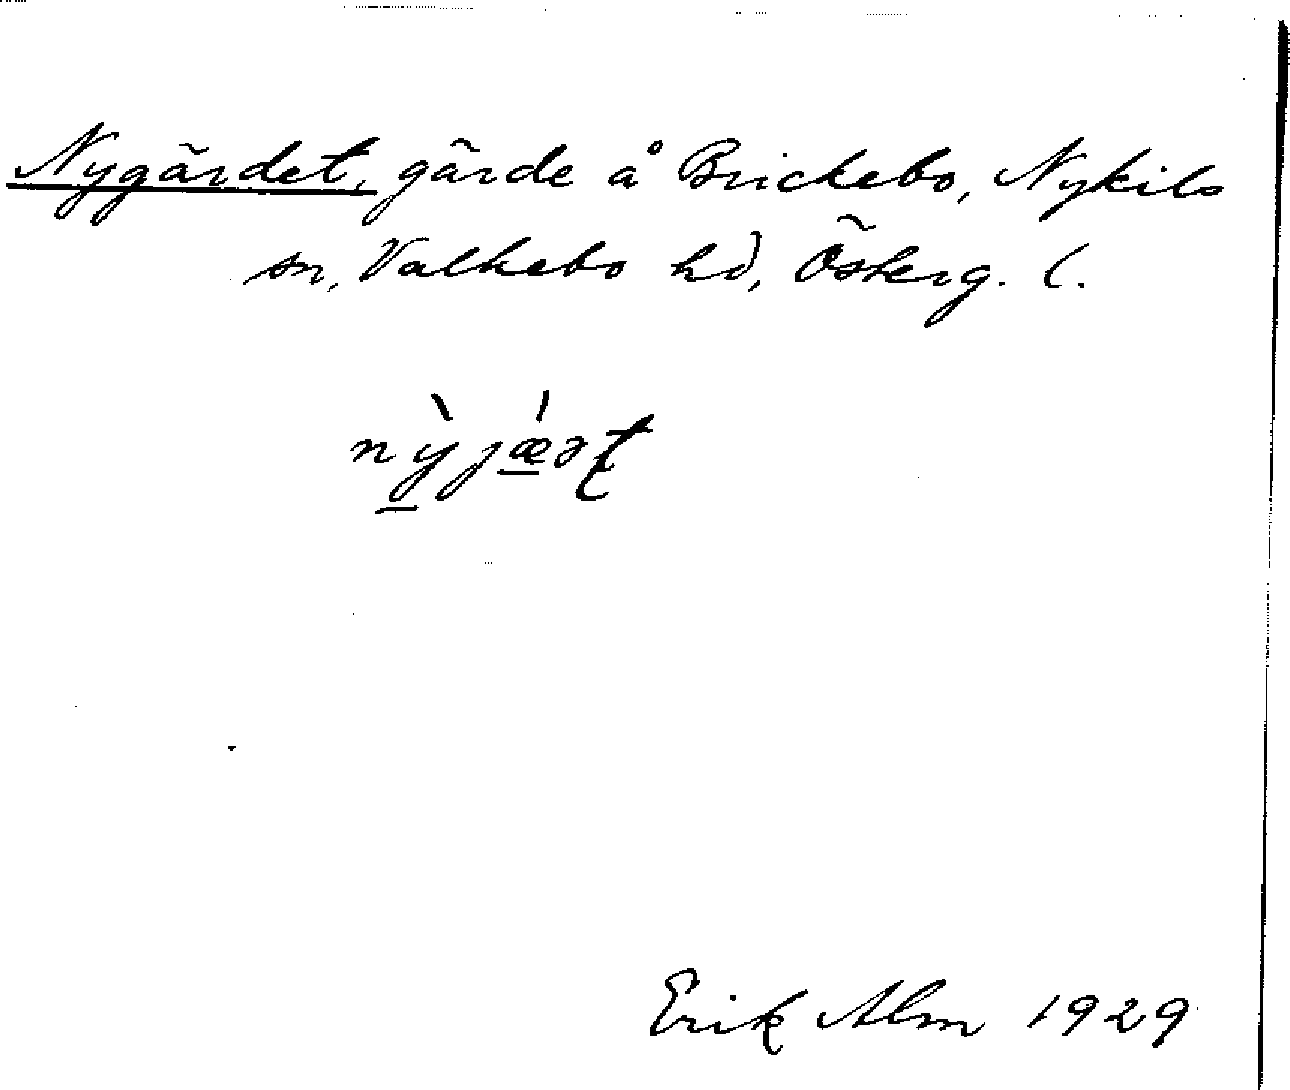 Nygärdet, gärde å Brickebo, Nykils
sn, Valkebo hd, Österg. l.
nỳjǽəʈ
Erik Alm 1929